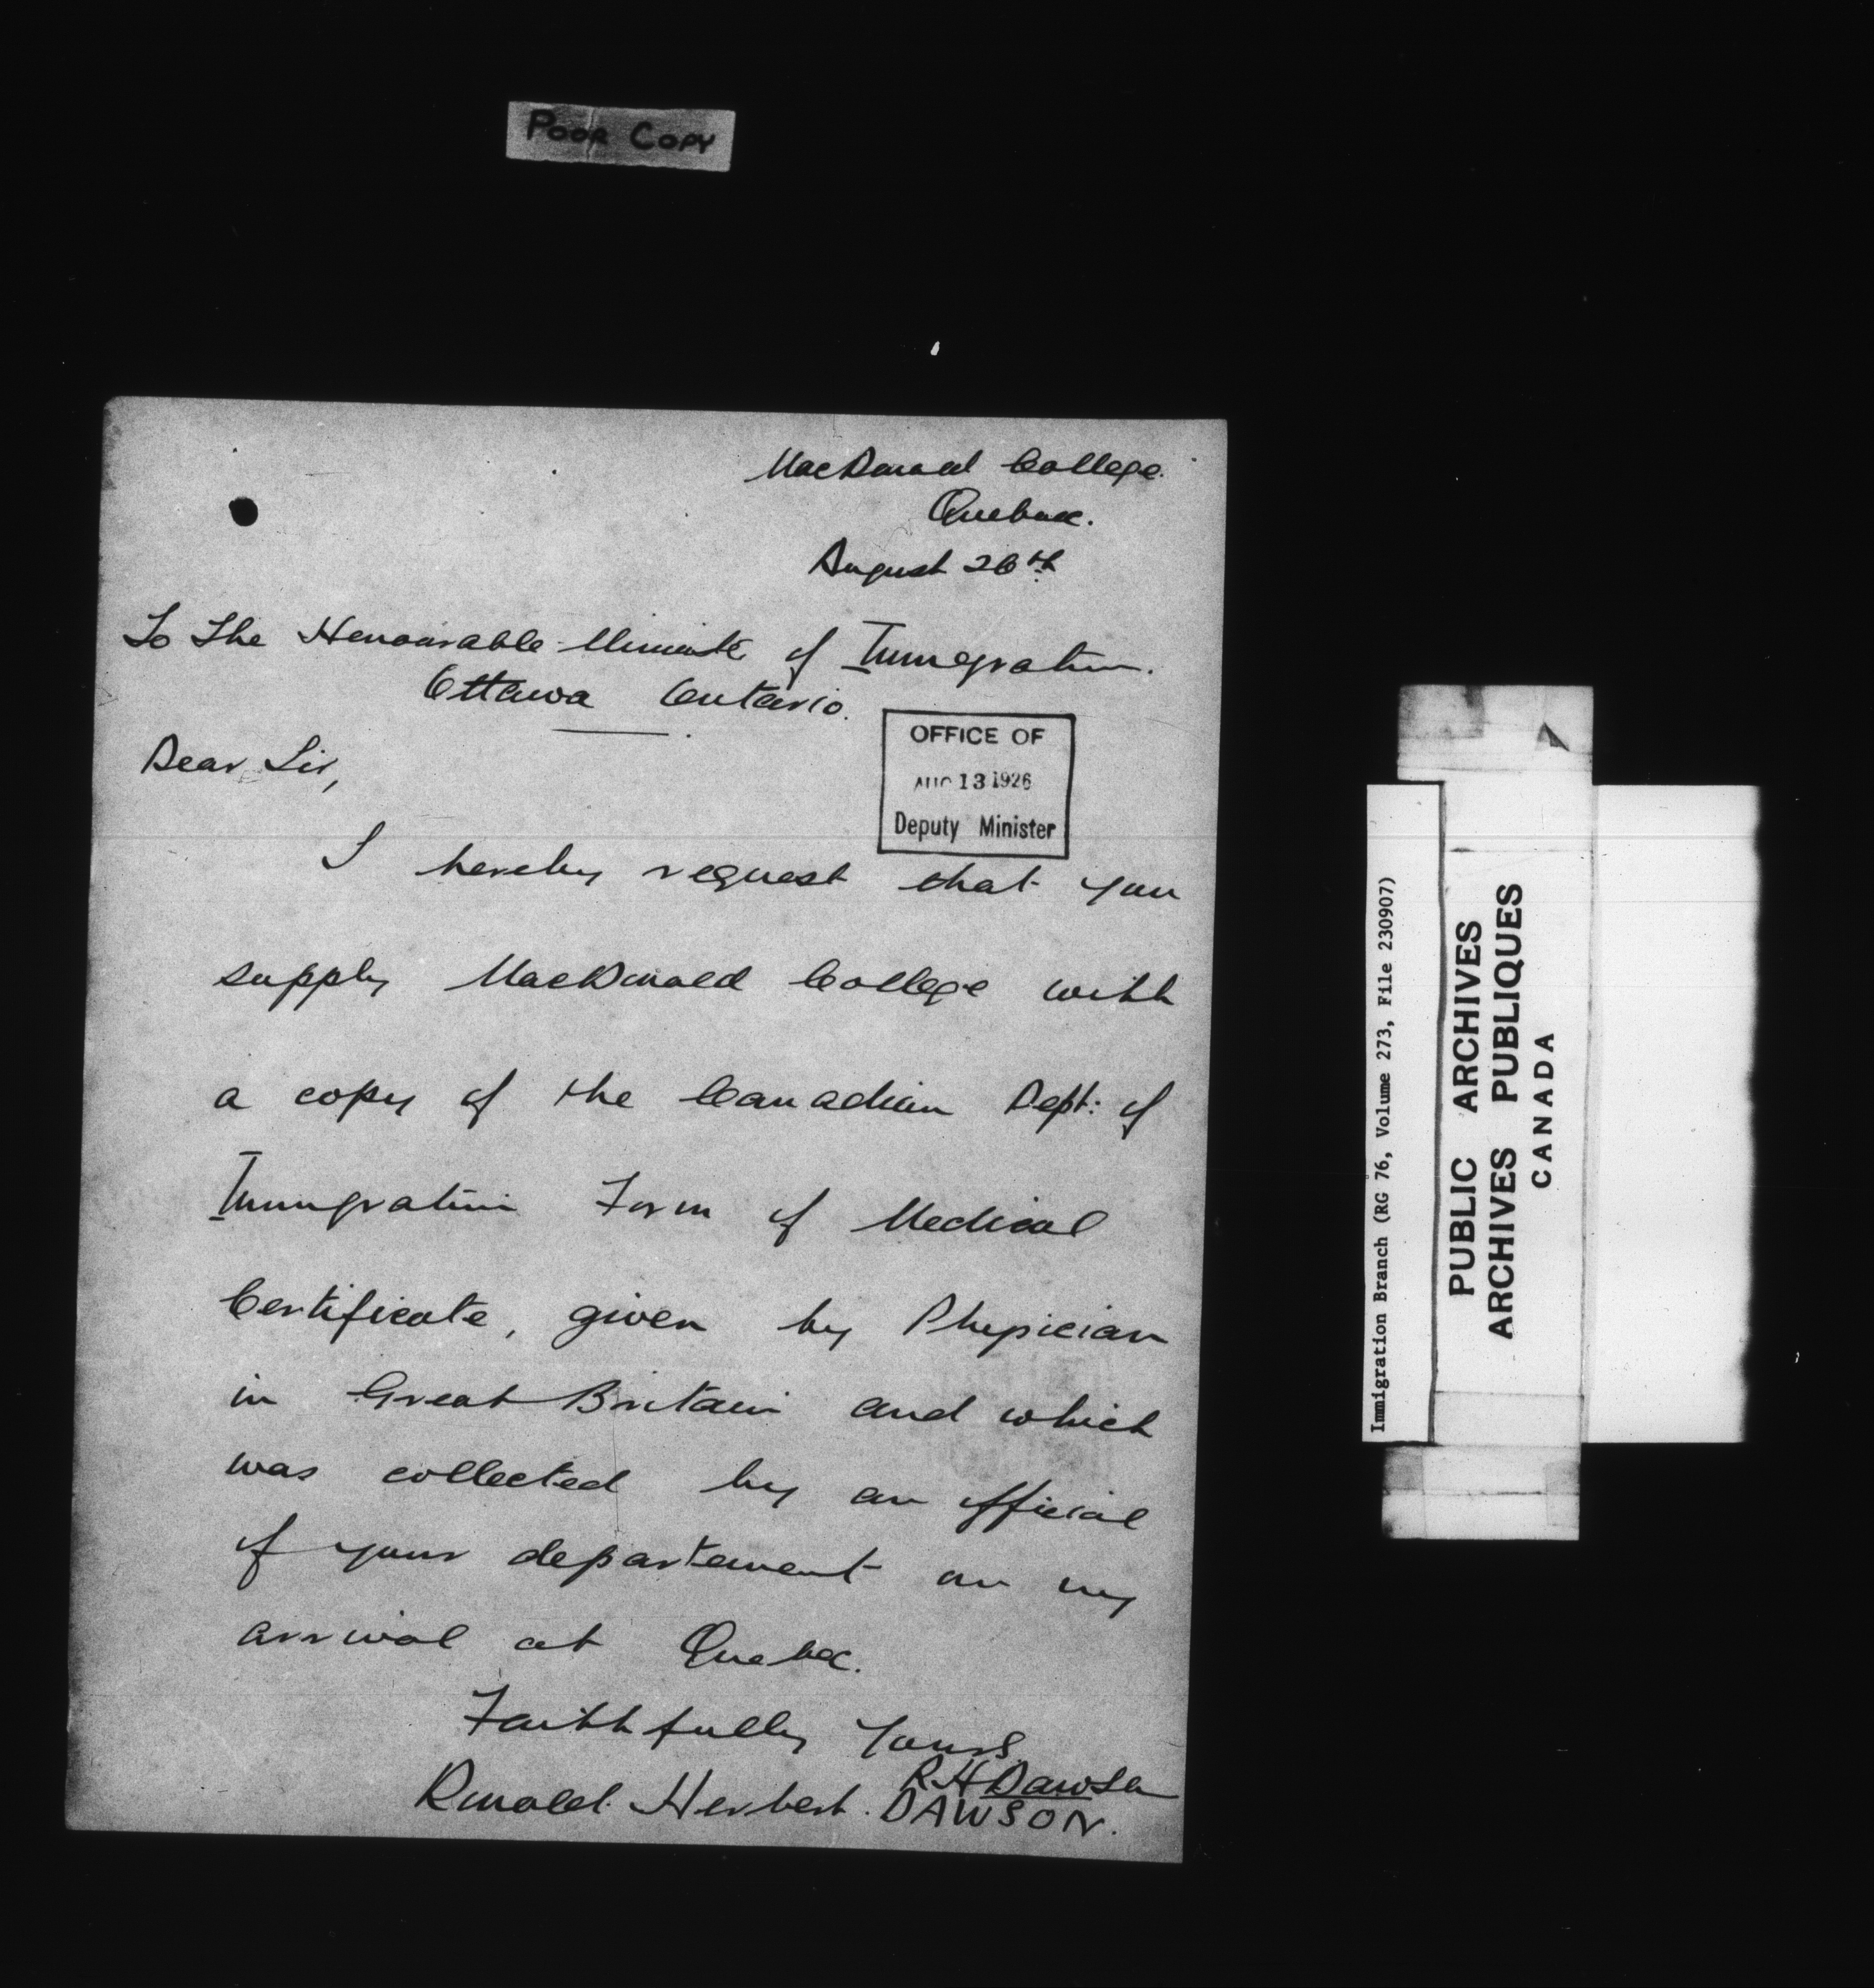 POOR COPY
MacDonald College.
Quebec.
August 26th
To The Honourable Ministe of Immegration.
Ottawa Ontario.
OFFICE OF
AUG 13 1926
Deputy Minister
Dear Sir,
I hereby request that you
supply MacDonald College with
a copy of the Canadian Dept: of
Immigration Form of Medical
Certificate, given by Physician
in Great Britain and which
was collected by an official
of your departement on my
arrival at Quebec.
Faithfully Yours
R H Dawson
Ronald. Herbert. DAWSON.
Immigration Branch (RG 76, Volume 273, File 230907)
PUBLIC ARCHIVES
ARCHIVES PUBLIQUES
CANADA